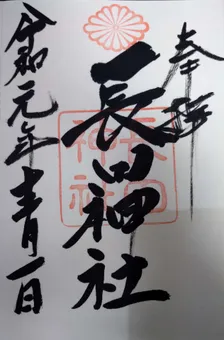 奉拝
長田神社
長田神社
令和元年十一月一日